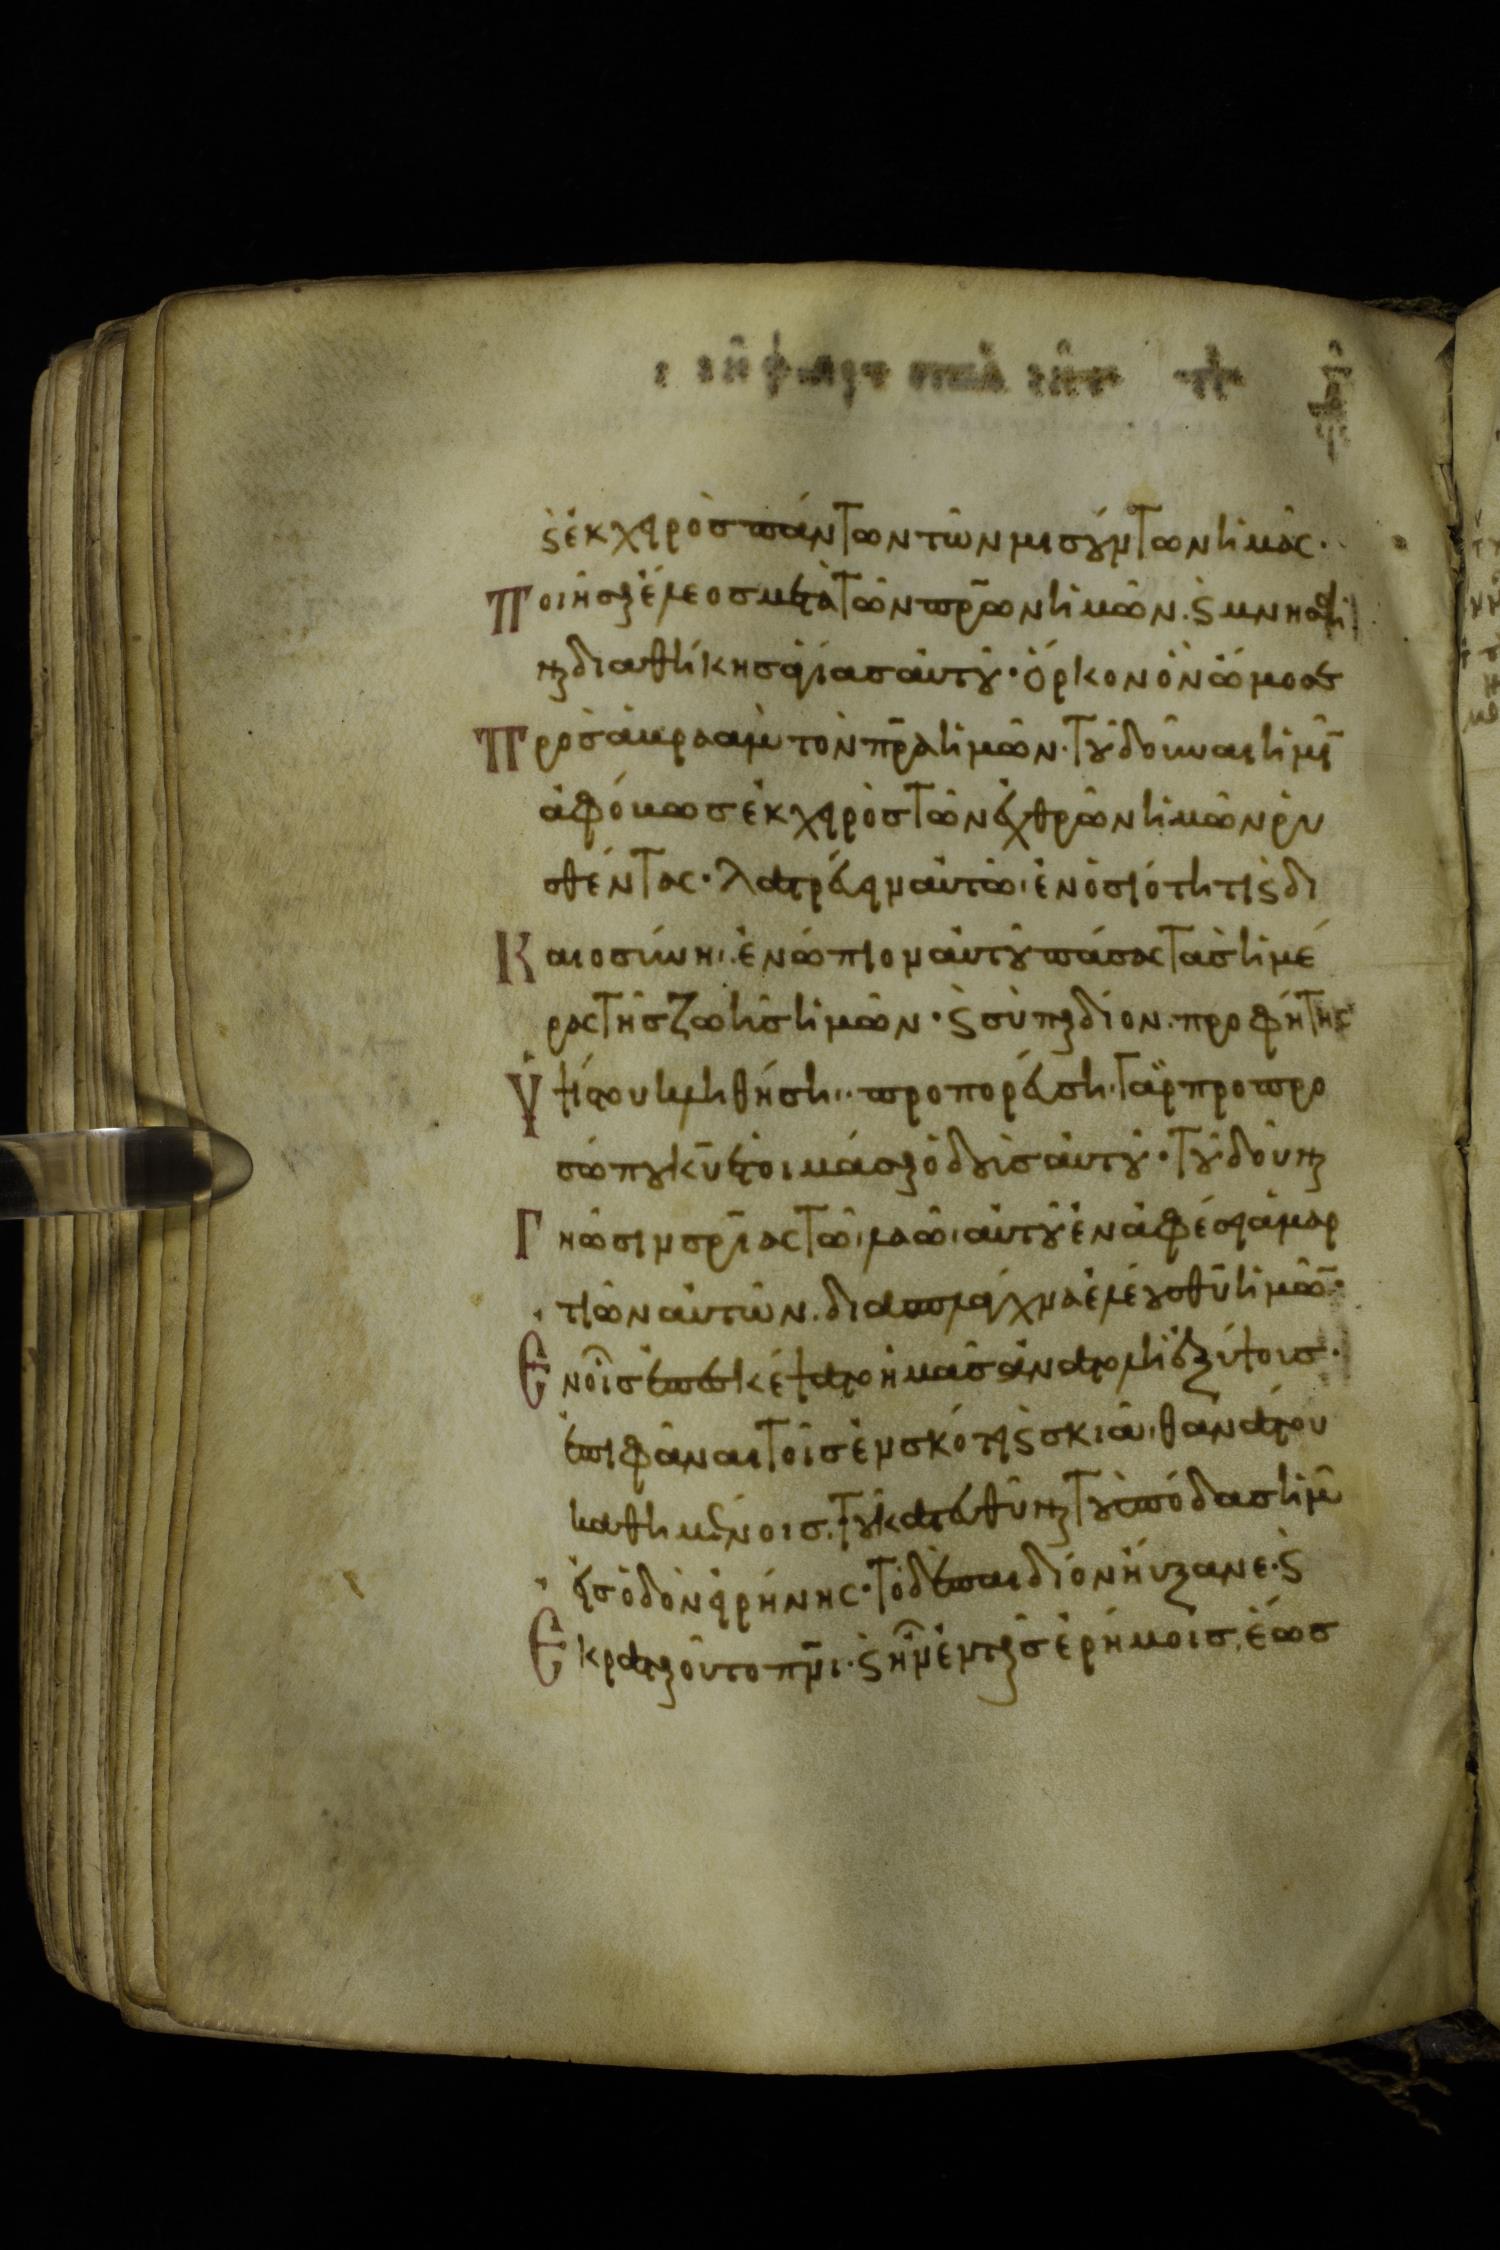 ϗ ἐκ χειρὸς πάντων τῶν μισούντων ἡμᾶς·
Ποιῆσαι ἔλεος μετὰ τῶν πρ̅ων ἡμῶν. ϗ μνησθῆ
ναι διαθήκης ἁγίας αὐτοῦ· ὅρκον ὃν ὤμοσε
Πρὸς ἀβραὰμ τὸν πρ̅α ἡμῶν· τοῦ δοῦναι ἡμῖ̅
ἀφόβως ἐκ χειρὸς τῶν ἐχθρῶν ἡμῶν ῥυ
σθέντας· λατρεύειν αὐτῶ ἐν ὁσιότητι ϗ δι
Καιοσύνηι· ἐνώπιον αὐτοῦ πάσας τὰς ἡμέ
ρας τῆς ζωῆς ἡμῶν· ϗ σὺ παιδίον. προφήτης
Ὑψίστου κληθήσῃ· προπορεύσῃ γὰρ πρὸ προ
σώπου κ̅υ ἑτοιμάσαι ὁδοὺς αὐτοῦ· τοῦ δοῦναι
Γνῶσιν σρ̅ίας τῶ λαῶ αὐτοῦ ἐν ἀφέσει ἁμαρ
τιῶν αὐτῶν. διὰ σπλάγχνα ἐλέους θ̅υ ἡμῶ̅·
Ἐν οἷς ἐπεσκέψατο ἡμᾶς ἀνατολὴ ἐξ ὕψους·
ἐπιφᾶναι τοῖς ἐν σκότει ϗ σκιᾶ θανάτου
καθημένοις. τοῦ κατευθῦναι τοὺς πόδας ἡμ̅
εἰς ὁδὸν εἰρήνης· τὸ δὲ παιδίον ηὔξανε· ϗ
Ἐκραταιοῦτο πν̅ι· ϗ ἦν ἐν ταῖς ἐρήμοις, ἕως